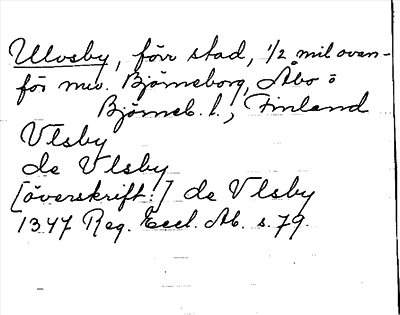 Ulvsby, förr stad, 1/2 mil ovan-
för nuv. Björneborg, Åbo o
Björneb. l., Finland
Vlsby
de Vlsby
[överskrift:] de Vlsby
1347 Reg. Eccl. Ab. s. 79.